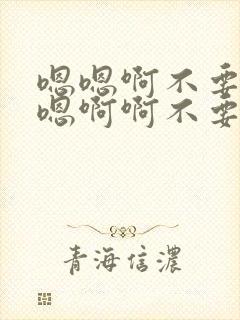 嗯嗯啊不要
嗯啊啊不要
青海信濃